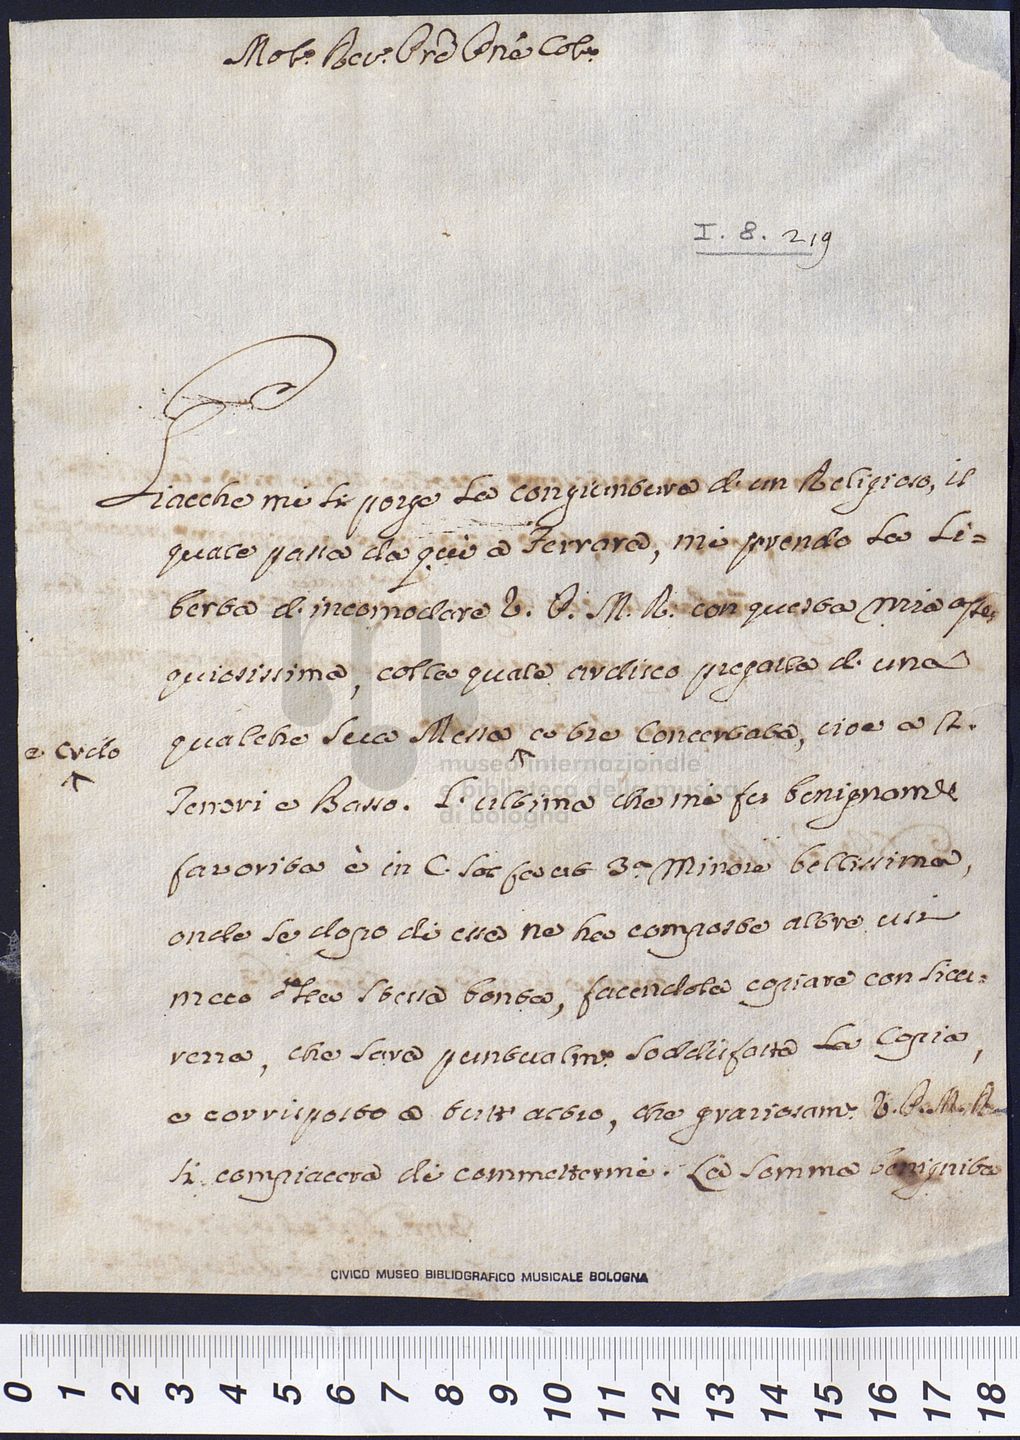 Molto Rev. Prē Pnē Col.
I. 8. 219
Giacche mi si porge la congiuntura di un Religioso, il
quale passa da qui a Ferrara, mi prendo la Li=
berta d'incomodare V. P. M. R. con questa mia osse
quiosissima, colla quale ardisco pregarla di una
qualche sua Messa a tre Concertata, cioe a 2.
e Credo
Tenori e Basso. L'ultima che mi fu benignamte
favorita è in C. Sol fa ut 3a Minore bellissima,
onde se dopo di essa ne ha composte altre usi
meco la stessa bonta, facendola copiare con sicu=
rezza, che sarà puntualme. soddisfatta la Copia,
e corrisposto a tutt'altro, che graziosame. V. P. M. R.
si compiacerà di commettermi. La somma benignita
CIVICO MUSEO BIBLIOGRAFICO MUSICALE BOLOGNA
museo internazionale
e biblioteca della musica
di bologna
0 1 2 3 4 5 6 7 8 9 10 11 12 13 14 15 16 17 18